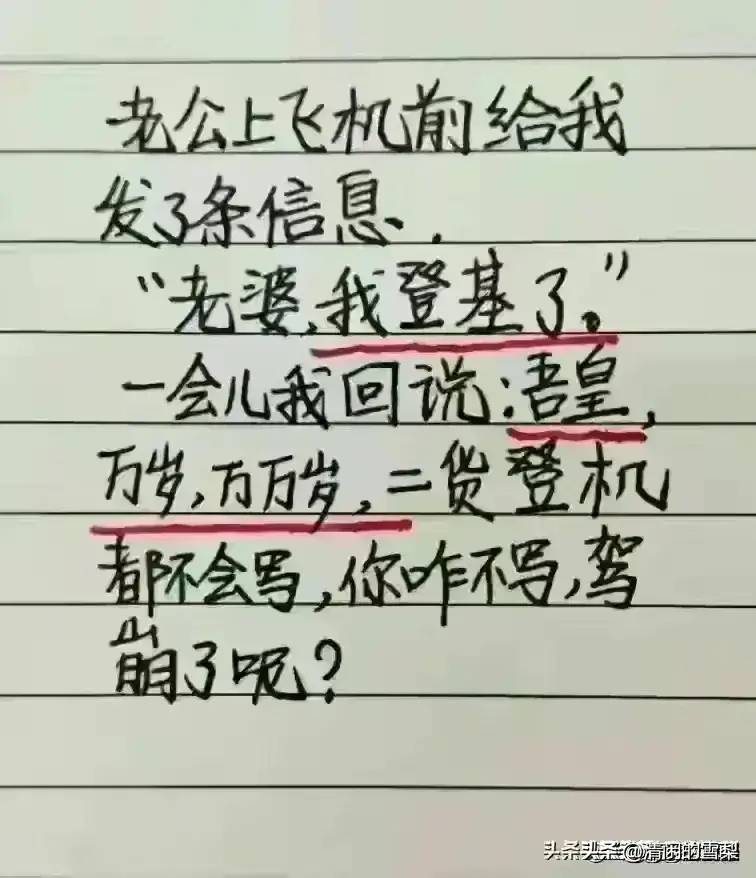 老公上飞机前给我
发了条信息.
“老婆,我登基了。”
一会儿我回说:吾皇,
万岁,万万岁,二货登机
都不会写,你咋不写,驾
崩了呢?
头条头条@清羽的雪梨